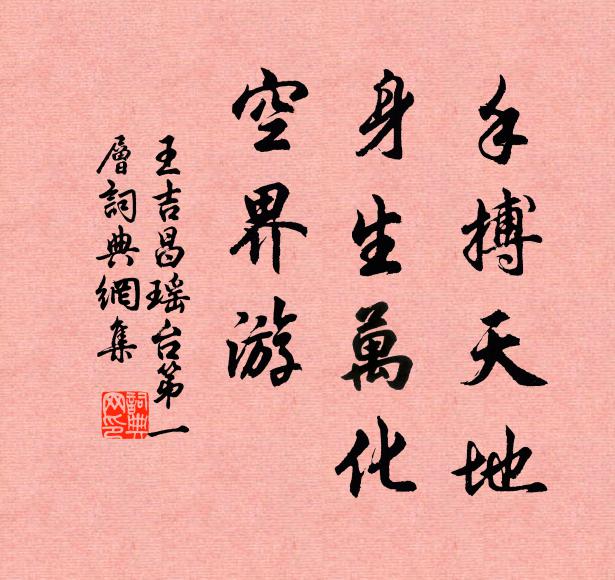 手搏天地
身生萬化
空界游
王吉昌瑶台第一
層詞典網集
詞典
网印